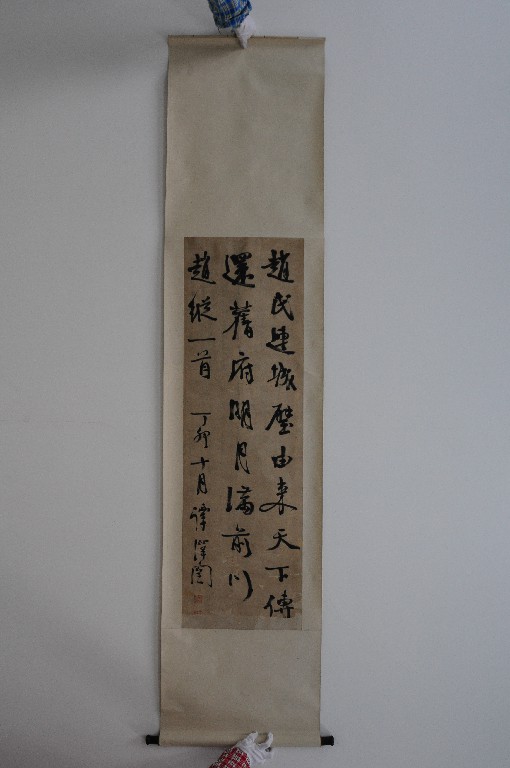 趙氏連城璧由来天下傳
還舊府明月滿前川
趙縱一首 丁卯十月 譚澤闓